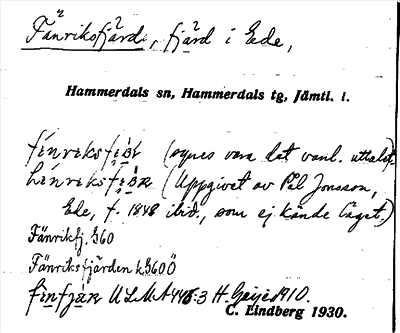 Fänriksfjärd, fjärd i Ede,
Hammerdals sn, Hammerdals tg, Jämtl. l.
(synes vara det vanl. uttalet.
(Uppgivet av Pål Jonsson,
Ede, f. 1848 ibid., som ej kände laget.)
Fänrikfj. G60
Fänriksfjärden kG60Ö
ULMA 445:3 H. Geijer 1910.
C. Lindberg 1930.